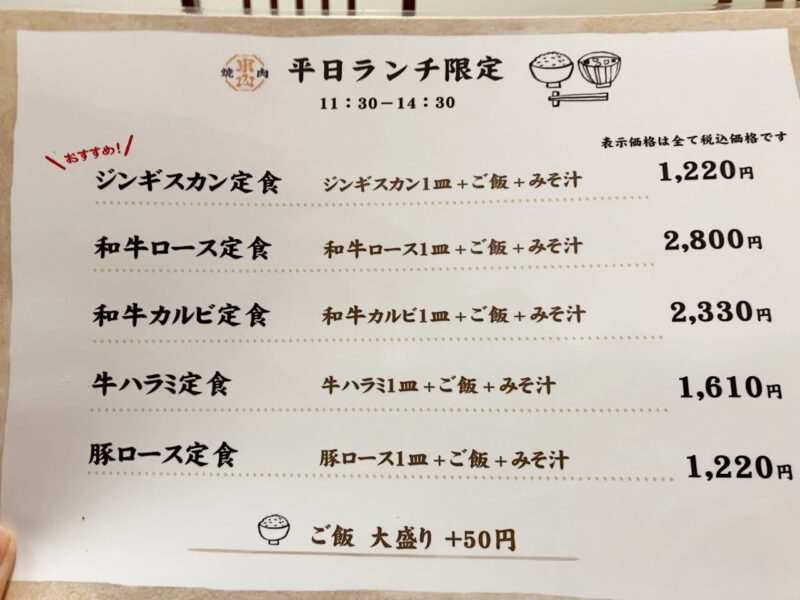 焼肉 平日ランチ限定
11:30-14:30
表示価格は全て税込価格です
おすすめ!
ジンギスカン定食 ジンギスカン1皿+ご飯+みそ汁 1,220円
和牛ロース定食 和牛ロース1皿+ご飯+みそ汁 2,800円
和牛カルビ定食 和牛カルビ1皿+ご飯+みそ汁 2,330円
牛ハラミ定食 牛ハラミ1皿+ご飯+みそ汁 1,610円
豚ロース定食 豚ロース1皿+ご飯+みそ汁 1,220円
ご飯 大盛り +50円